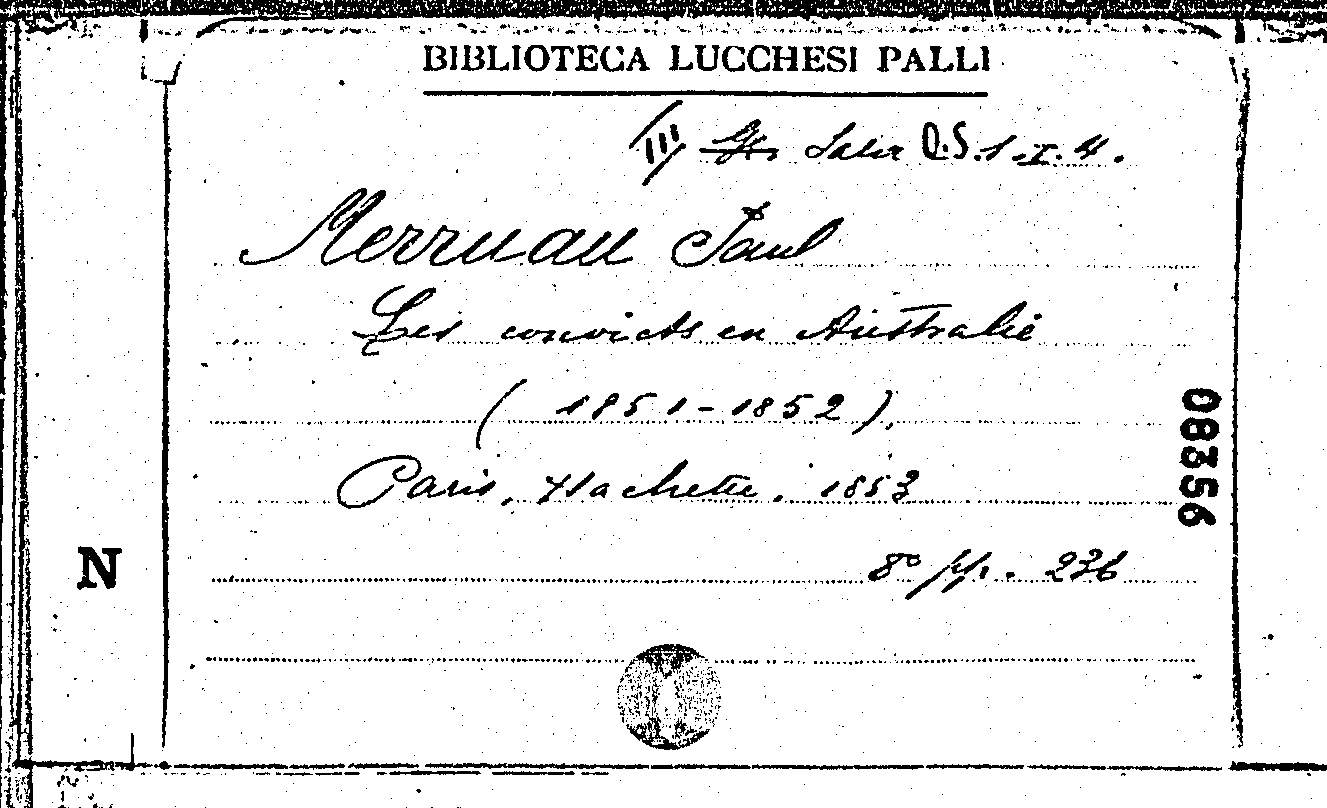 BIBLIOTECA LUCCHESI PALLI
III Sala Q.S.1.I.4.
Merruau Paul
Les convicts en Australie
(1851-1852).
Paris, Hachette. 1853
8° pp. 236
08356
N